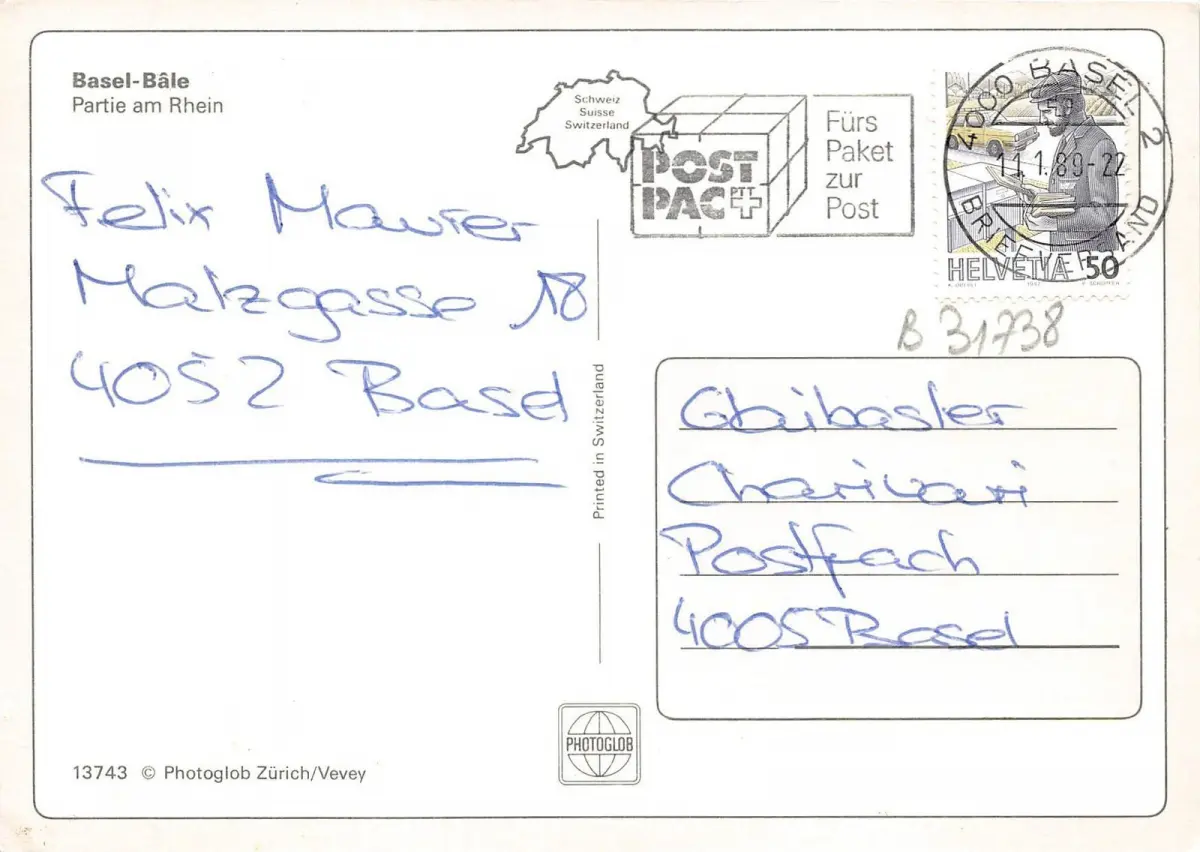 Basel-Bâle
Partie am Rhein
Schweiz
Suisse
Switzerland
POST
PAC PTT
Fürs
Paket
zur
Post
4000 BASEL 2
11.1.89-22
BRIEFVERSAND
HELVETIA 50
1987
B 31738
Felix Maurer
Malzgasse 18
4052 Basel
Printed in Switzerland
Glaibasler
Charivari
Postfach
4005 Basel
PHOTOGLOB
13743 © Photoglob Zürich/Vevey